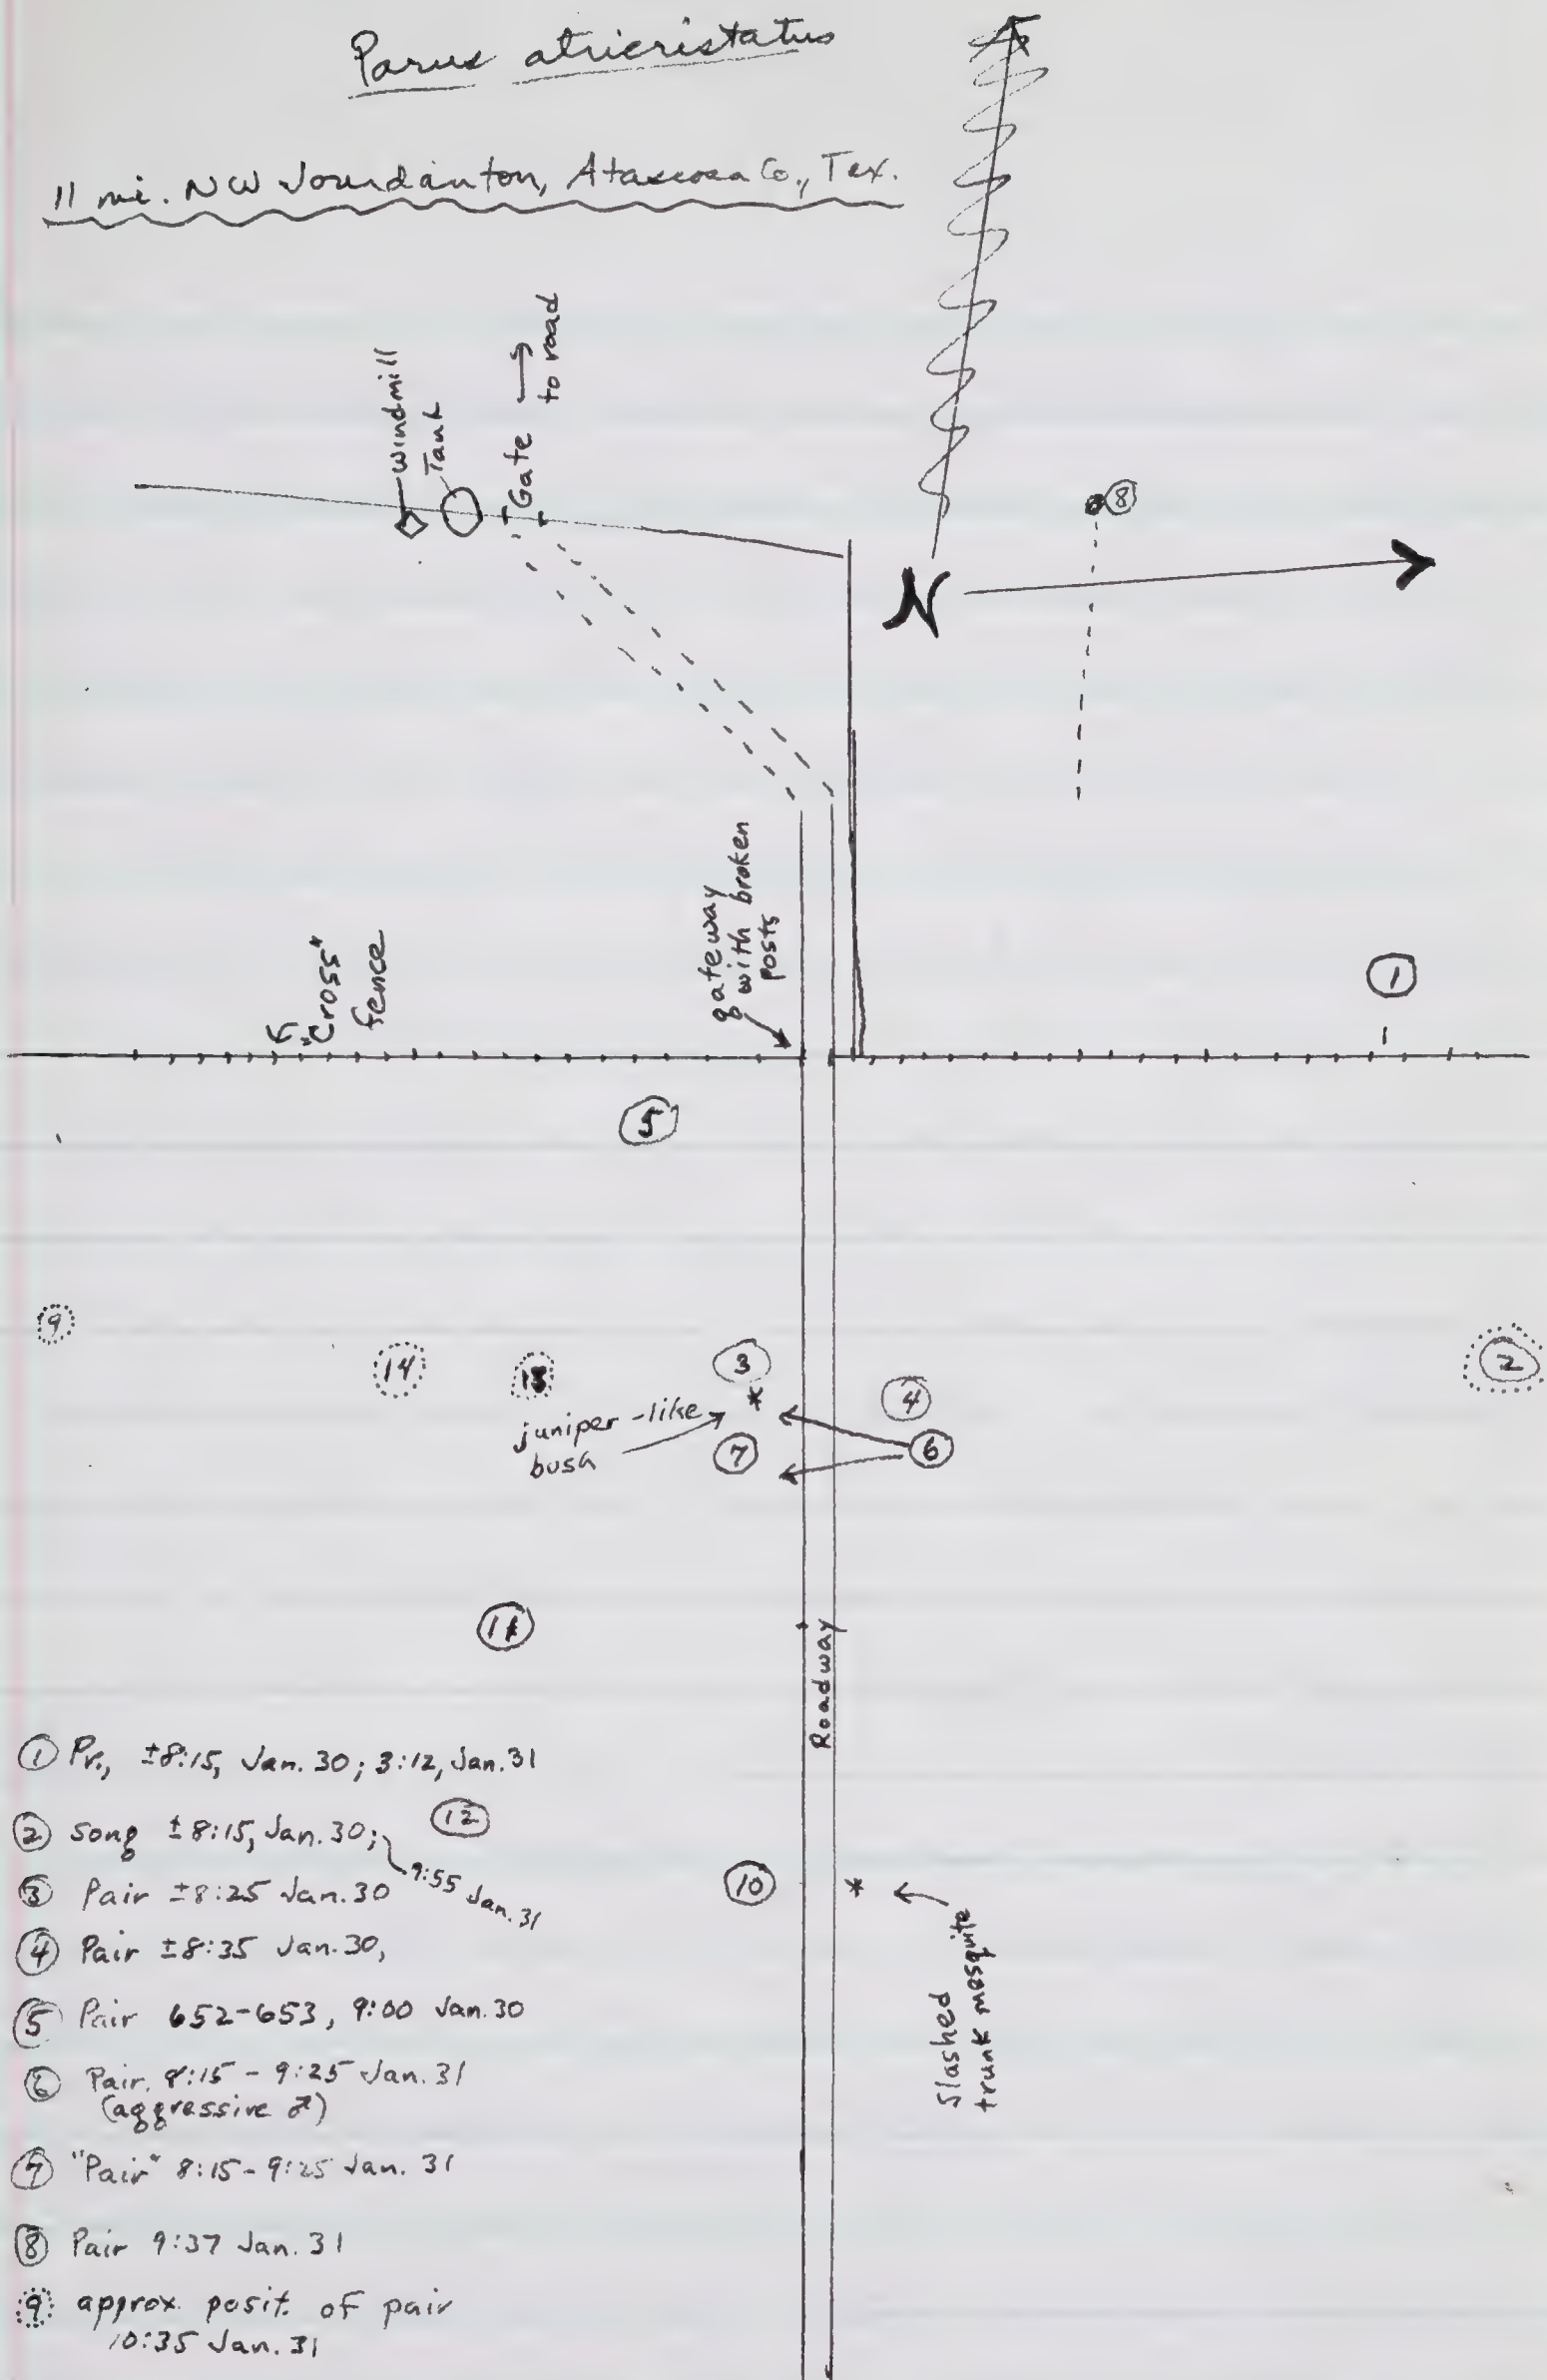 Parus atricristatus
11 mi. NW Jourdanton, Atascosa Co., Tex.
windmill
Tank
Gate → to road
8
N
gateway
with broken
posts
"Cross"
fence
1
5
9
14
13
3
2
*
4
juniper-like
bush
7
6
11
Roadway
① Pr., ±8:15, Jan. 30; 3:12, Jan. 31
12
② song ±8:15, Jan. 30; 9:55 Jan. 31
③ Pair ±8:25 Jan. 30
10
*
④ Pair ±8:35 Jan. 30,
Slashed
trunk mesquite
⑤ Pair 652-653, 9:00 Jan. 30
⑥ Pair. 8:15 - 9:25 Jan. 31
(aggressive ♂)
⑦ "Pair" 8:15 - 9:25 Jan. 31
⑧ Pair 9:37 Jan. 31
⑨ approx. posit. of pair
10:35 Jan. 31